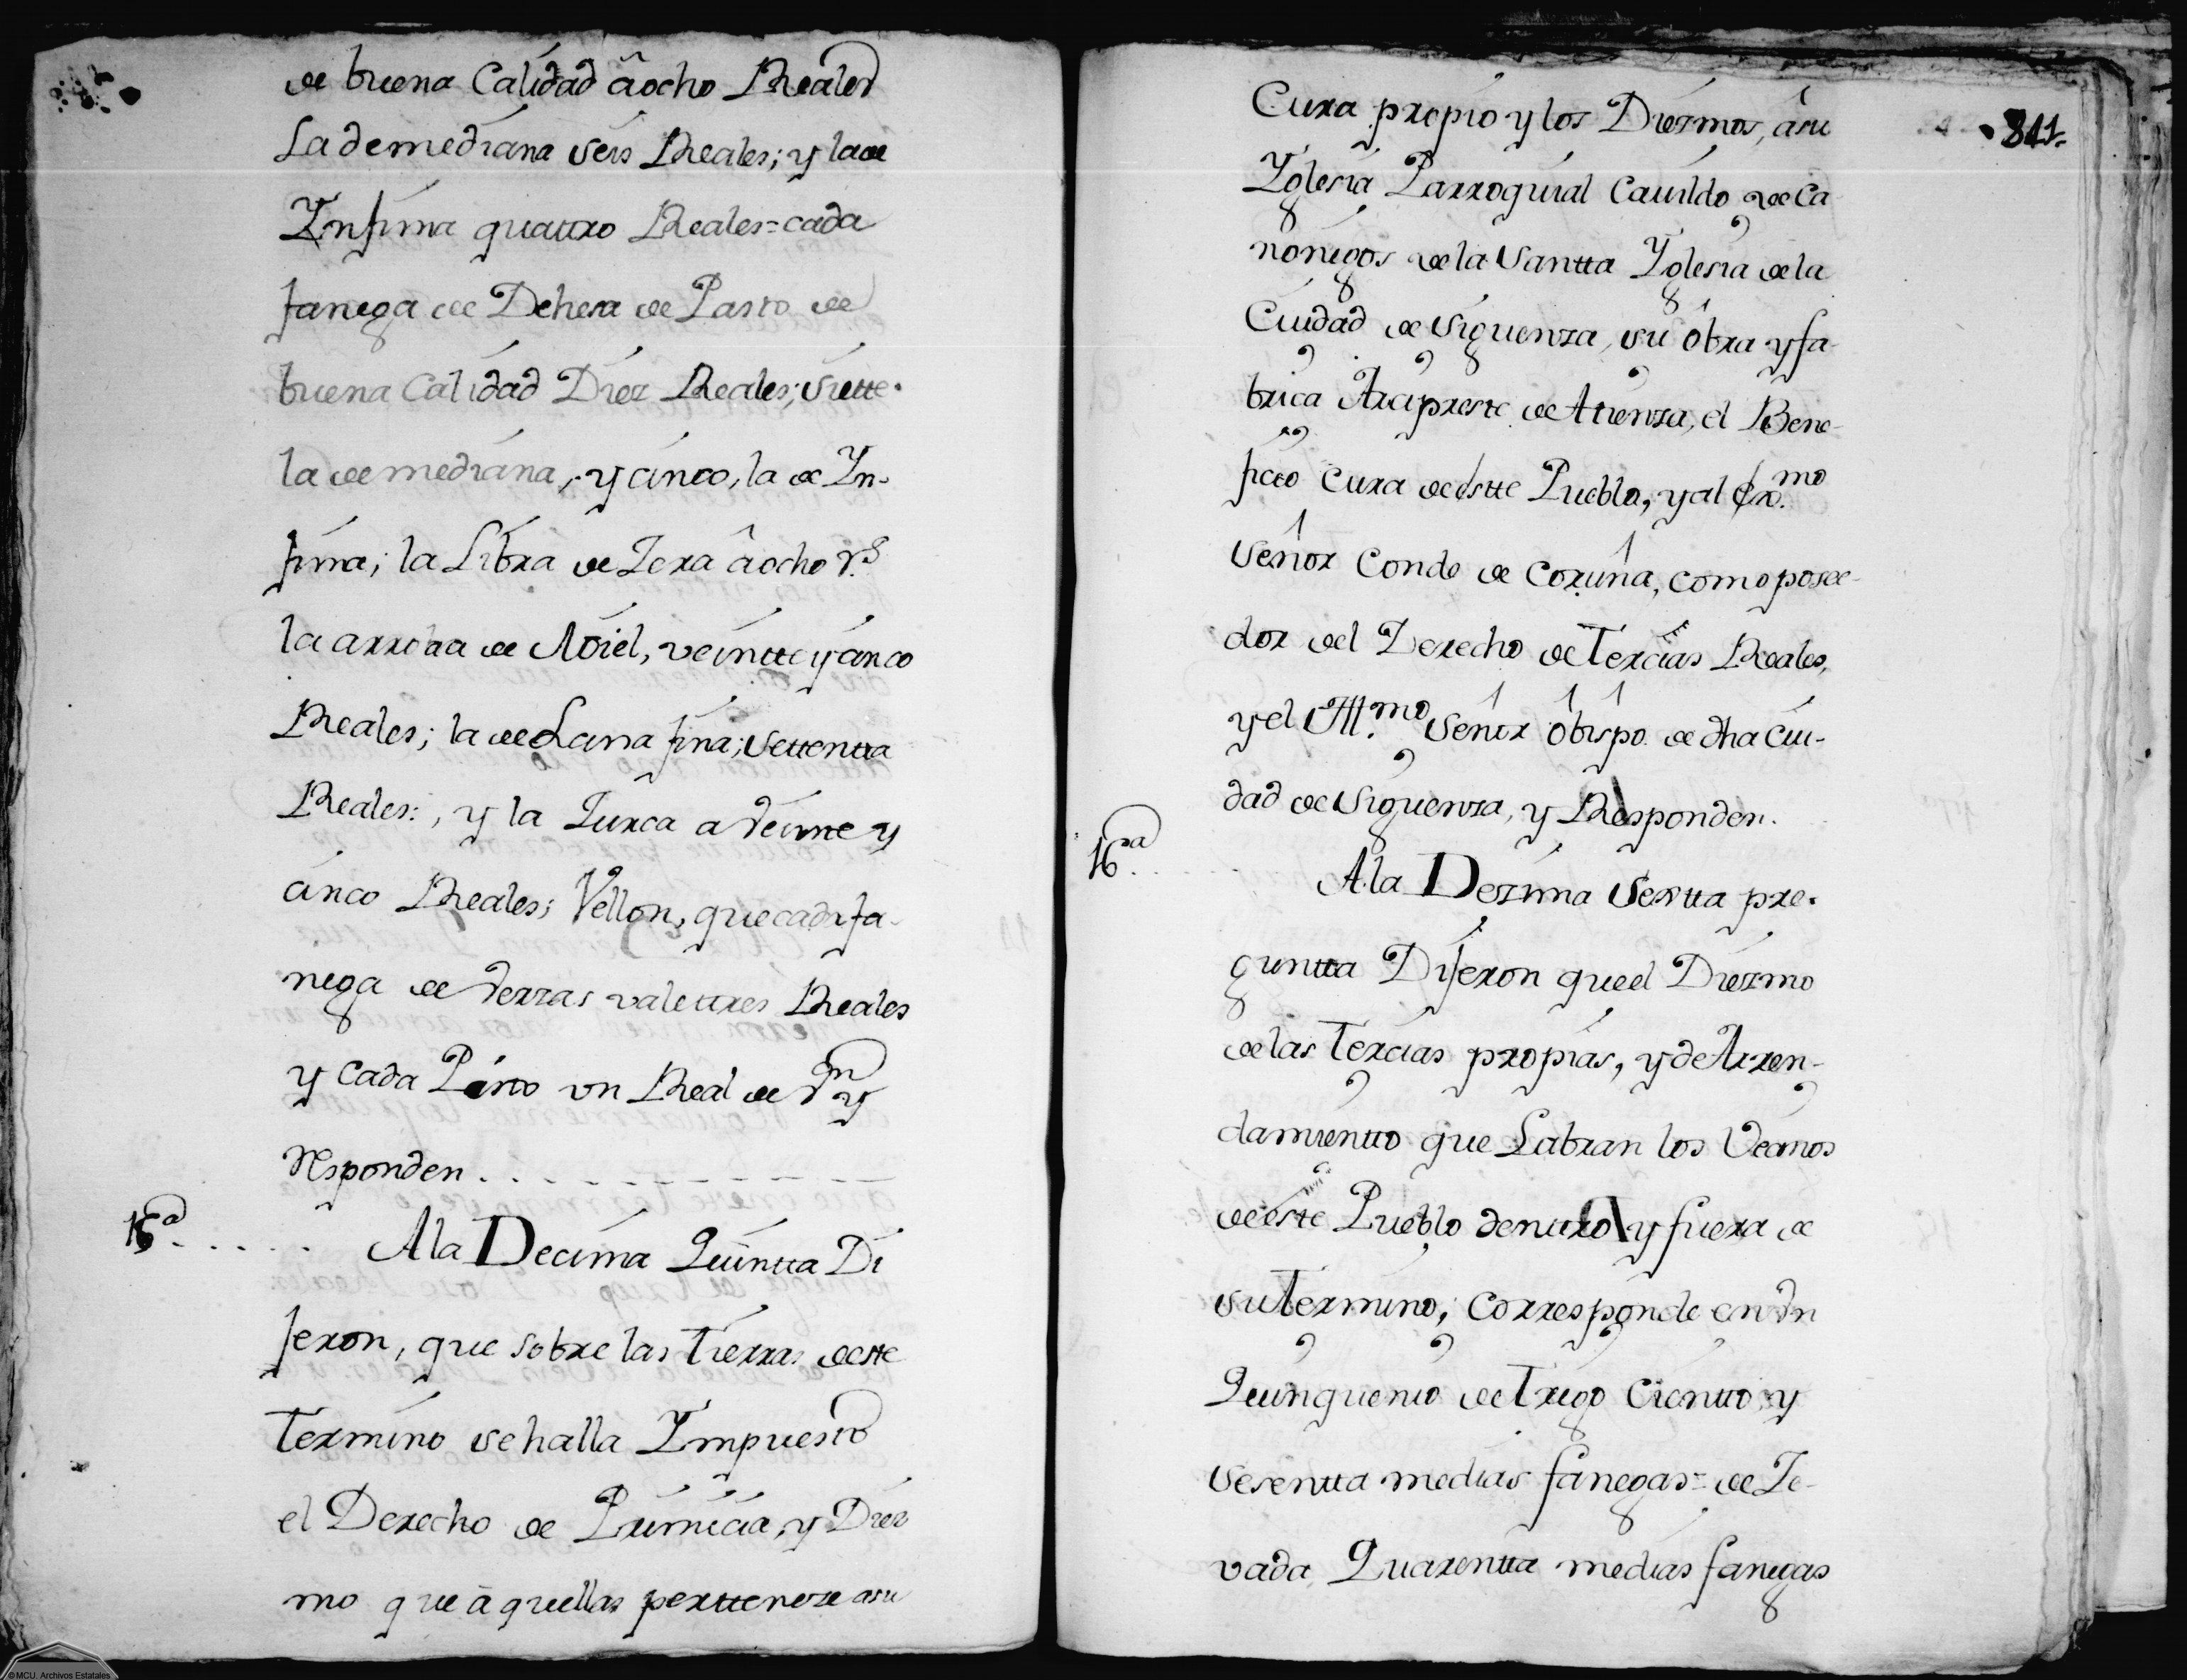 de buena Calidad â ocho Reales
La de mediana seis Reales; y la de
Ynfima quattro Reales = cada
fanega de Dehesa de Pasto de
buena Calidad Diez Reales; Siette
la de mediana, y cinco, la de Yn-
fima; la Libra de Zera â ocho r.s
la arroba de Miel, veintte y cinco
Reales; la de Lana fina; Settentta
Reales:, y la Zurca a Veinte y
cinco Reales; Vellon, que cada fa-
nega de Yerzas vale ttres Reales
y Cada un Real de Vn y
responden
15ª
A la Decima Quintta Di
jeron, que sobre las Tierras de este
Termino se halla Ympuesto
el Derecho de Primicia, y Diez
mo que â quellas pertteneze a su
841
Cura propio y los Diezmos, â su
Yglesia Parroquial Cavildo de Ca
nonigos de la Santta Yglesia de la
Ciudad de Siguenza, su Obra y fa-
brica Arcipreste de Atienza, el Bene-
ficio Cura de estte Pueblo, y al Exmo.
Señor Conde de Coruña, como posee-
dor del Derecho de Tercias Reales,
y el Illmo. Señor Obispo de dha Ciu-
dad de Siguenza, y Responden.
16ª
A la Dezima Sextta pre-
guntta Dijeron que el Diezmo
de las Tercias propias, y de Arren-
damientto que Labran los Vecinos
de este Pueblo denttro y fuera de
su Termino, Corresponde en Vn
Quinquenio de Trigo Cientto y
Sesentta medias fanegas = de Ze-
vada Quarentta medias fanegas
© MCU. Archivos Estatales